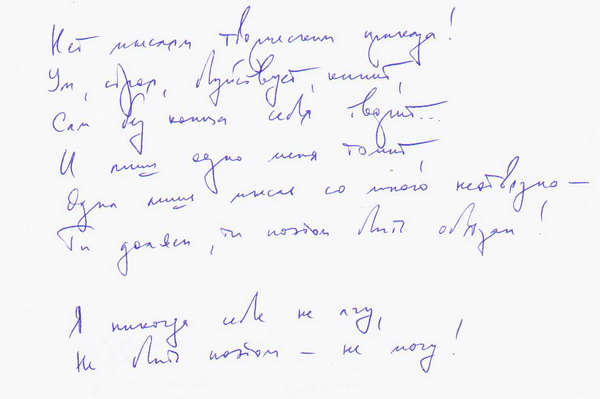 Нет мыслям творческим приказа!
Ум, страх, буйствует, кипит,
Сам без конца себя творит...
И лишь одно меня томит,
Одна лишь мысль со мною неотвязно —
Ты должен, ты поэтом быть обязан!
Я никогда себе не лгу,
Не быть поэтом — не могу!